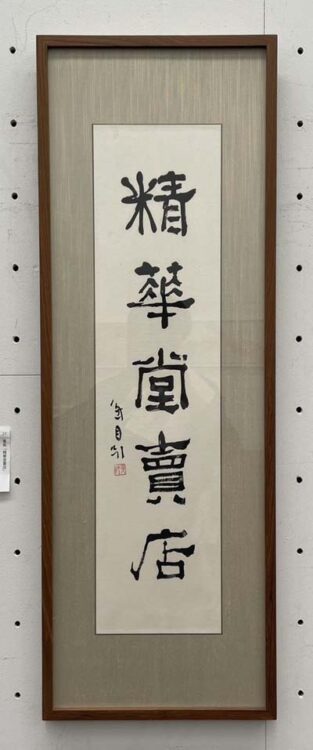 精華堂賣店